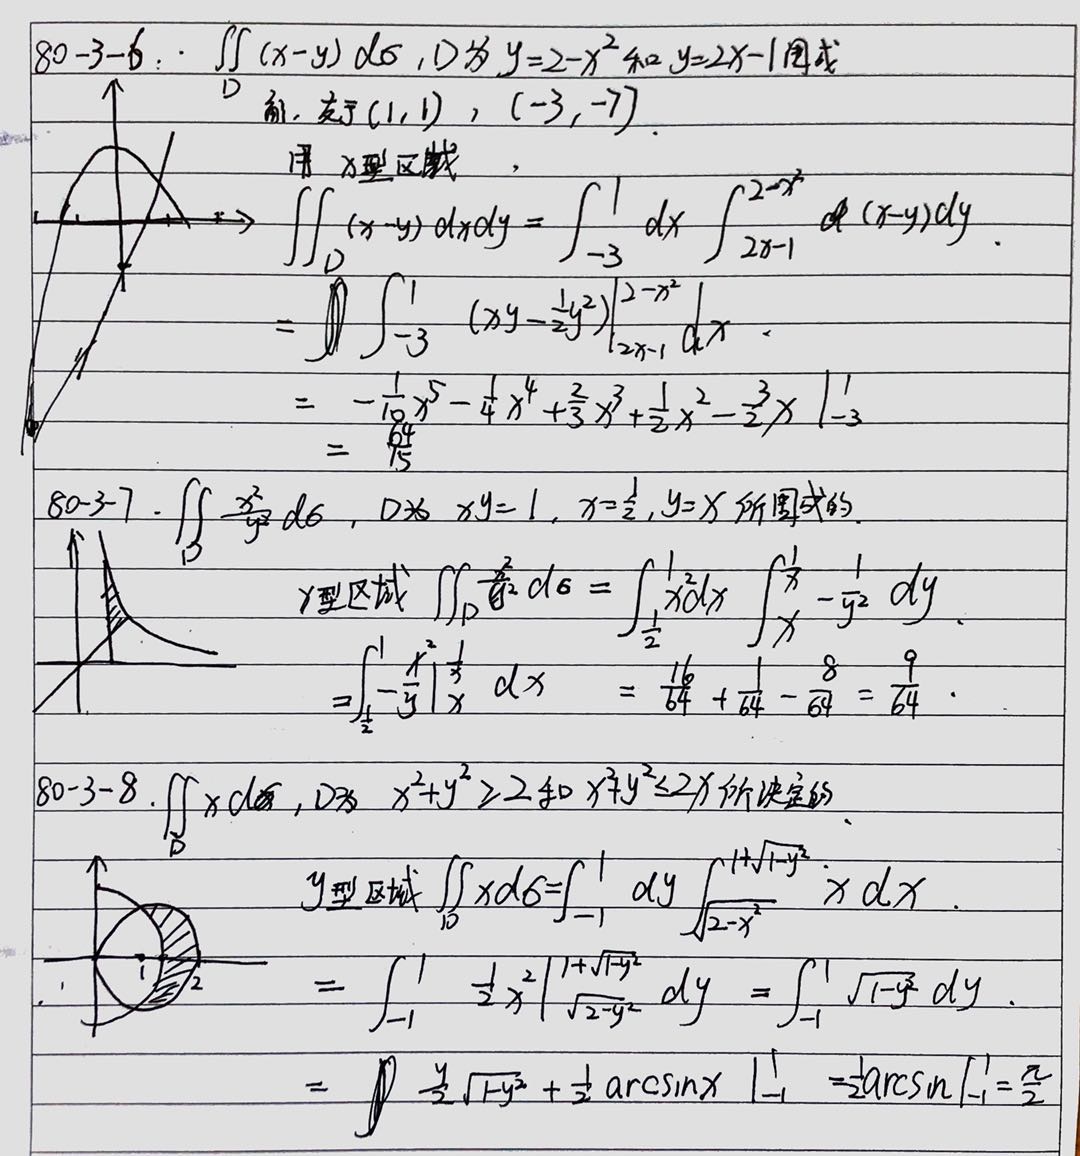 80-3-6. ∬_D (x-y) dσ , D为 y=2-x² 和 y=2x-1围成
解. 交于(1,1) , (-3,-7).
用 X型区域 .
∬_D (x-y) dxdy = ∫_{-3}^{1} dx ∫_{2x-1}^{2-x²} d (x-y)dy .
= ∫_{-3}^{1} (xy-½y²)|_{2x-1}^{2-x²} dx .
= -1/10 x⁵ - 1/4 x⁴ + 2/3 x³ + 1/2 x² - 3/2 x |_{-3}^{1}
= 64/15
80-3-7. ∬_D x²/y² dσ , D为 xy=1, x=½, y=x 所围成的.
X型区域 ∬_D x²/y² dσ = ∫_{½}^{1} x²dx ∫_{x}^{1/x} -1/y² dy .
= ∫_{½}^{1} -x²/y |_{x}^{1/x} dx = 16/64 + 1/64 - 8/64 = 9/64 .
80-3-8. ∬_D x dσ , D为 x²+y²≥2 和 x²+y²≤2x 所决定的.
y型区域 ∬_D xdσ = ∫_{-1}^{1} dy ∫_{√(2-x²)}^{1+√(1-y²)} x dx .
1 2
= ∫_{-1}^{1} ½x² |_{√(2-y²)}^{1+√(1-y²)} dy = ∫_{-1}^{1} √(1-y²) dy .
= y/2 √(1-y²) + ½ arcsinx |_{-1}^{1} = ½arcsin|_{-1}^{1} = π/2